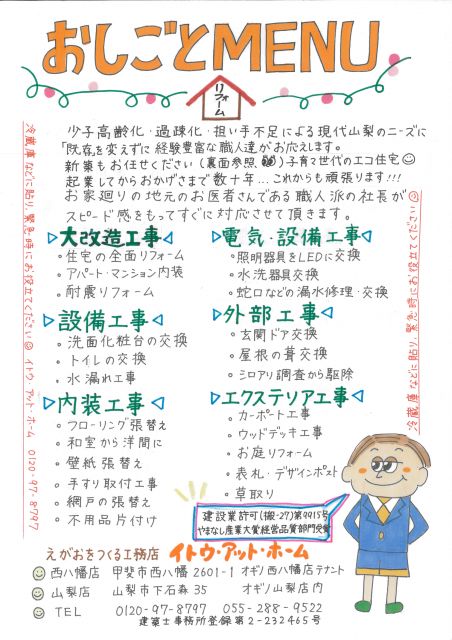 おしごとMENU
リフォーム
少子高齢化・過疎化・担い手不足による現代山梨のニーズに
「既存を変えずに経験豊富な職人達がお応えします。
新築もお任せください(裏面参照 )子育て世代のエコ住宅
起業してからおかげさまで数十年...これからも頑張ります!!!
お家廻りの地元のお医者さんである職人派の社長が
スピード感をもってすぐに対応させて頂きます。
冷蔵庫などに貼り、緊急時にお役立てください イトウ・アット・ホーム 0120-97-8797
冷蔵庫などに貼り、緊急時にお役立てください
大改造工事
・住宅の全面リフォーム
・アパート・マンション内装
・耐震リフォーム
設備工事
・洗面化粧台の交換
・トイレの交換
・水漏れ工事
内装工事
・フローリング張替え
・和室から洋間に
・壁紙張替え
・手すり取付工事
・網戸の張替え
・不用品片付け
電気・設備工事
・照明器具をLEDに交換
・水洗器具交換
・蛇口などの漏水修理・交換
外部工事
・玄関ドア交換
・屋根の葺交換
・シロアリ調査から駆除
エクステリア工事
・カーポート工事
・ウッドデッキ工事
・お庭リフォーム
・表札・デザインポスト
・草取り
建設業許可(搬-27)第9915号
やまなし産業大賞経営品質部門受賞
えがおをつくる工務店 イトウ・アット・ホーム
西八幡店 甲斐市西八幡2601-1 オギノ西八幡店テナント
山梨店 山梨市下石森35 オギノ山梨店内
TEL 0120-97-8797 055-288-9522
建築士事務所登録第2-232465号